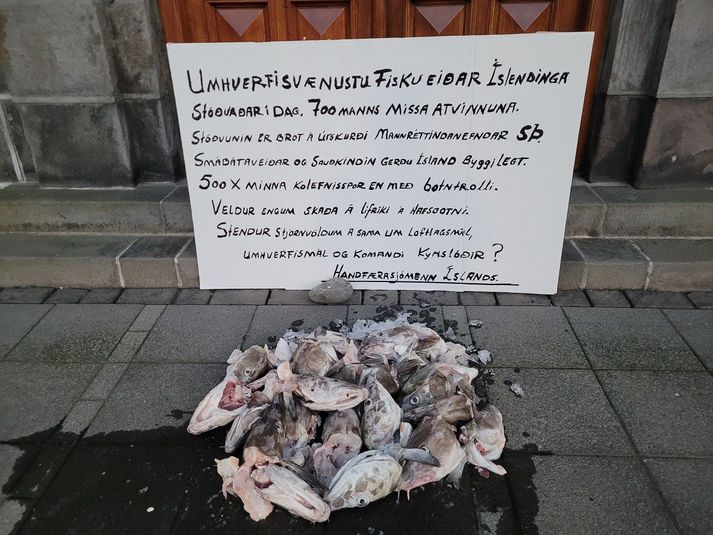 UMHVERFISVÆNUSTU FISKVEIÐAR ÍSLENDINGA
STÖÐVAÐAR Í DAG. 700 MANNS MISSA ATVINNUNA.
STÖÐVUNIN ER BROT Á ÚRSKURÐI MANNRÉTTINDANEFNDAR SÞ.
SMÁBÁTAVEIÐAR OG SAUÐKINDIN GERÐU ÍSLAND BYGGILEGT.
500 X MINNA KOLEFNISSPOR EN MEÐ BOTNTROLLI.
VELDUR ENGUM SKAÐA Á LÍFRÍKI Á HAFSBOTNI.
STENDUR STJÓRNVÖLDUM Á SAMA UM LOFTLAGSMÁL,
UMHVERFISMÁL OG KOMANDI KYNSLÓÐIR?
HANDFÆRASJÓMENN ÍSLANDS.